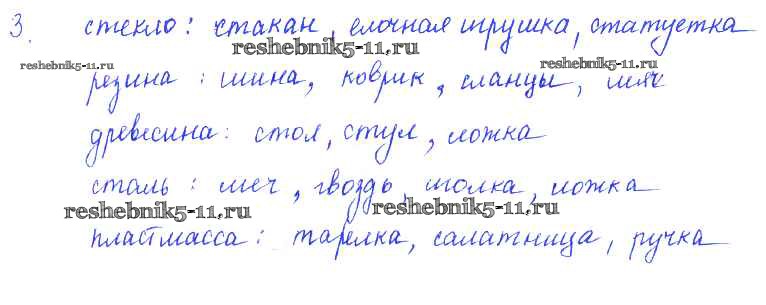 3. стекло: стакан, елочная игрушка, статуетка
reshebnik5-11.ru
reshebnik5-11.ru reshebnik5-11.ru
резина: шина, коврик, сланцы, мяч
древесина: стол, стул, ложка
сталь: меч, гвоздь, иголка, ложка
reshebnik5-11.ru reshebnik5-11.ru
пластмасса: тарелка, салатница, ручка